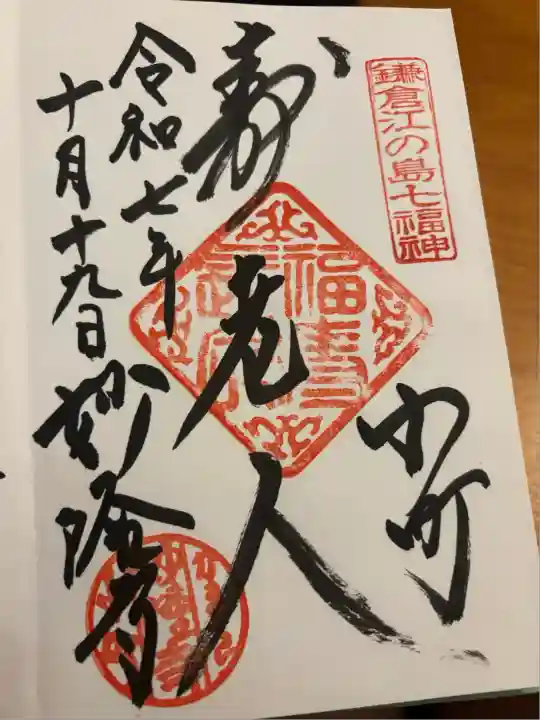 鎌倉江の島七福神
小町
寿老人
福寿
令和七年
十月十九日
妙隆寺